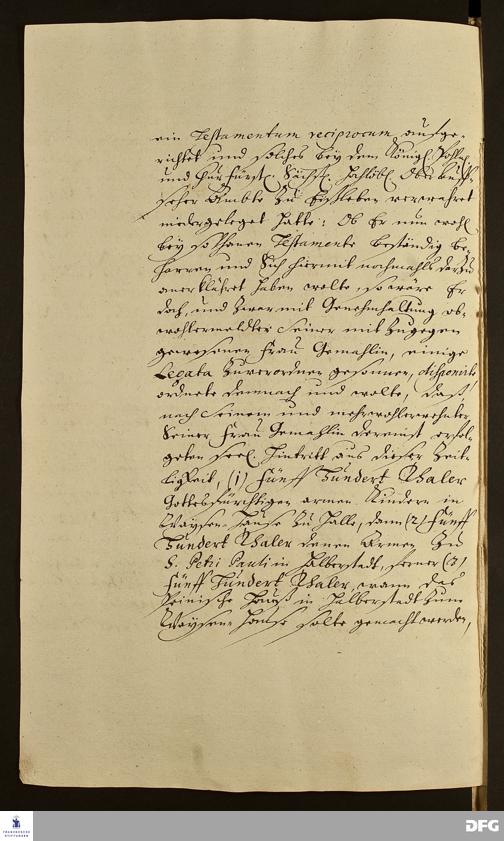 ein Testamentum reciprocum aufge-
richtet und solches bey dem Königl. Pohln.
und Chur Fürstl. Sächß. hochlöbl. Ober Auff-
seher Ambte zu Eißleben verwahret
niedergeleget hatte; Ob Er nun wohl
bey sothanen Testamente beständig be-
harren und Sich hiermit nochmahls darzu
anerkläret haben wolte, so wäre Er
doch, und zwar mit Genehmhaltung ob-
wohlermeldter Seiner mit zugegen
gewesenen Frau Gemahlin, einige
Legata zuverordnen gesonnen, disponirte
ordnete demnach und wolte, daß
nach Seinem und mehrwohlerwehnter
Seiner Frau Gemahlin dereinst erfol-
geten seel. Hintritt aus dieser Zeit-
ligkeit, (1) Fünff Hundert Thaler
Gottesfürchtigen armen Kindern in
Waysen-Hause zu Halle, dann (2) Fünff
Hundert Thaler denen Armen zu
S. Petri Pauli in Halberstadt, ferner (3)
Fünff Hundert Thaler, wann das
Hauß in Halberstadt zum
Waysen-Hause solte gemacht werden,
FRANCKESCHE
STIFTUNGEN
DFG